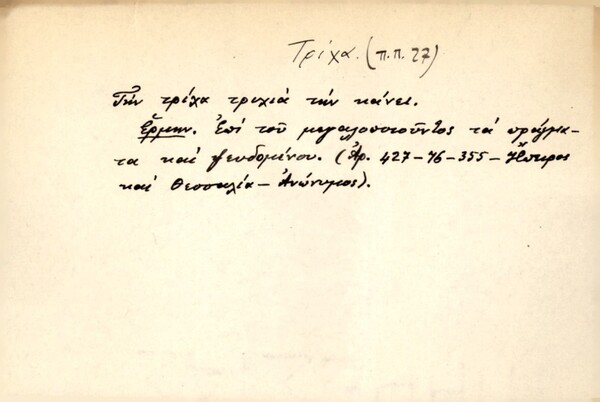 Τρίχα. (π.π. 27)
Τὴν τρίχα τριχιὰ τὴν κάνει.
Ἑρμην. Ἐπὶ τοῦ μεγαλοποιοῦντος τὰ πράγμα-
τα καὶ ψευδομένου. (Ἀρ. 427-76-355-Ἤπειρος
καὶ Θεσσαλία-Ἀνώνυμος).